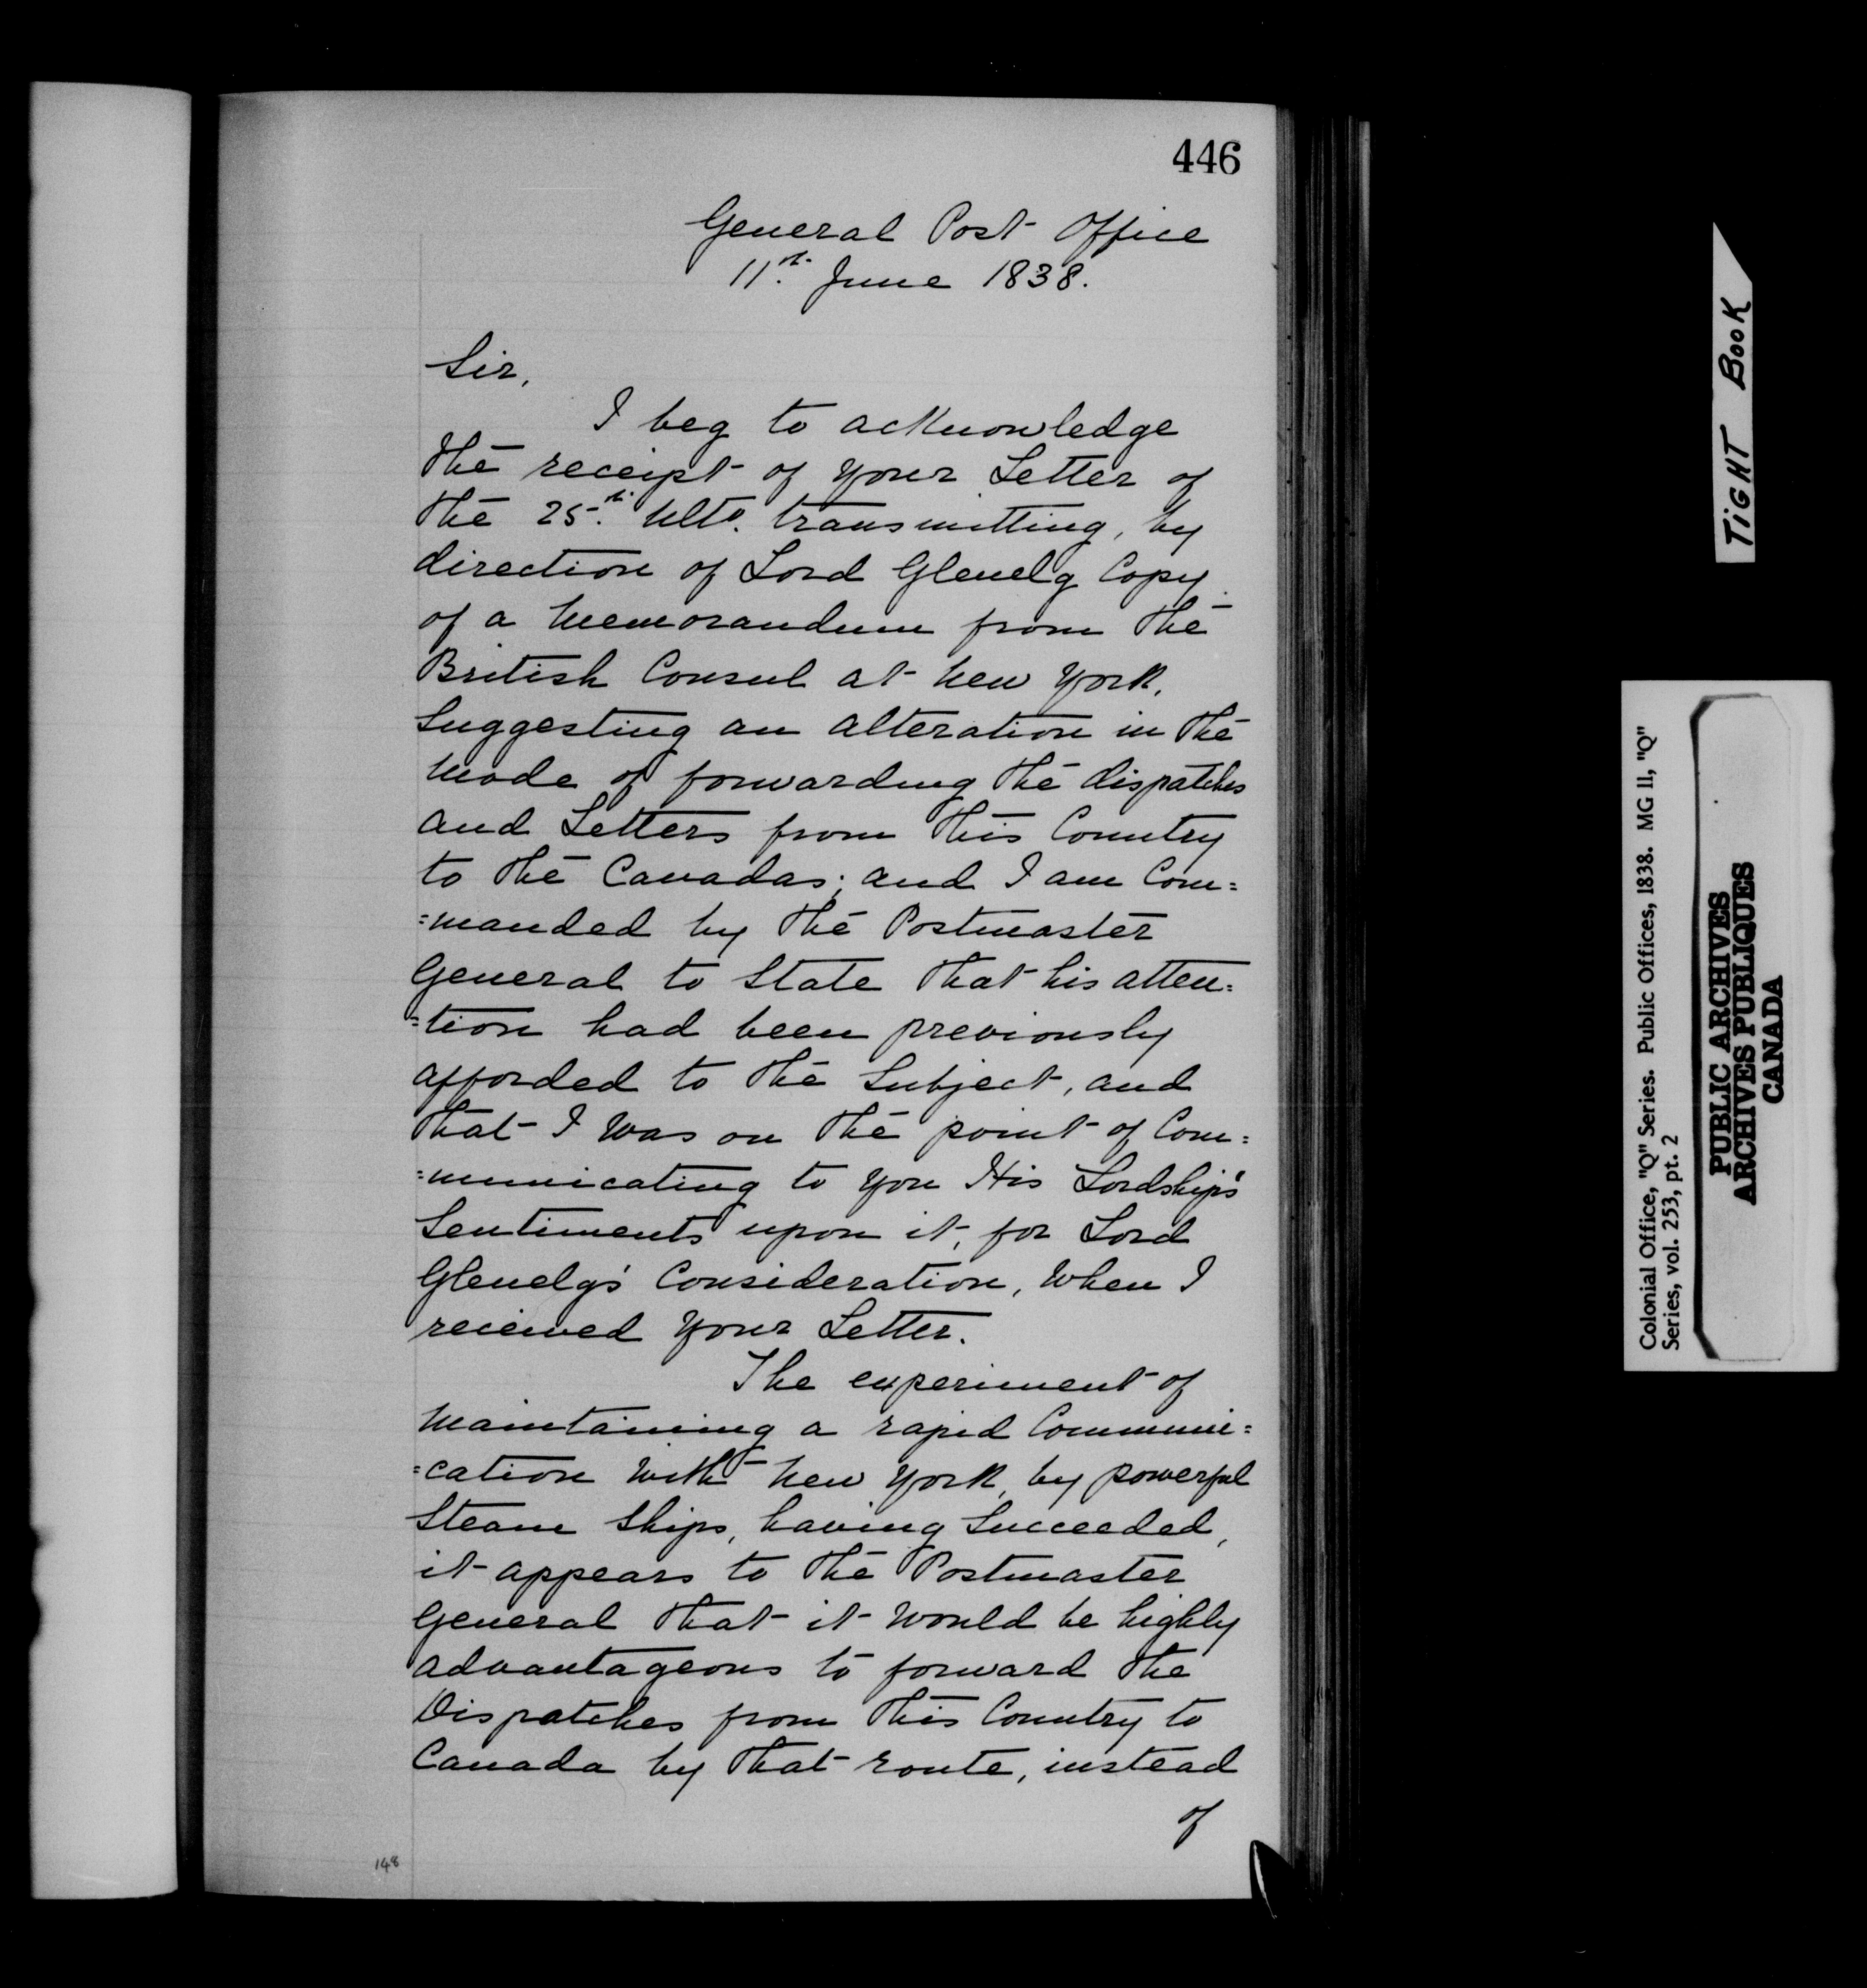 446
General Post Office
11th. June 1838.
Sir,
I beg to acKnowledge
the receipt of your Letter of
the 25th. Ulto. transmitting, by
direction of Lord Glenelg Copy
of a Memorandum from the
British Consul at New York,
Suggesting an alteration in the
Mode of forwarding the dispatches
and Letters from this Country
to the Canadas; and I am Com=
=manded by the Postmaster
General to State that his atten=
=tion had been previously
afforded to the Subject, and
that I was on the point of Com=
=municating to you His Lordship's
Sentiments upon it, for Lord
Glenelg's Consideration, when I
received your Letter.
The experiment of
Maintaining a rapid Communi=
=cation with New York, by powerful
Steam Ships, having Succeeded,
it appears to the Postmaster
General that it would be highly
advantageous to forward the
Dispatches from this Country to
Canada by that route, instead
of
148
TIGHT BOOK
Colonial Office, "Q" Series. Public Offices, 1838. MG 11, "Q"
Series, vol. 253, pt. 2
PUBLIC ARCHIVES
ARCHIVES PUBLIQUES
CANADA